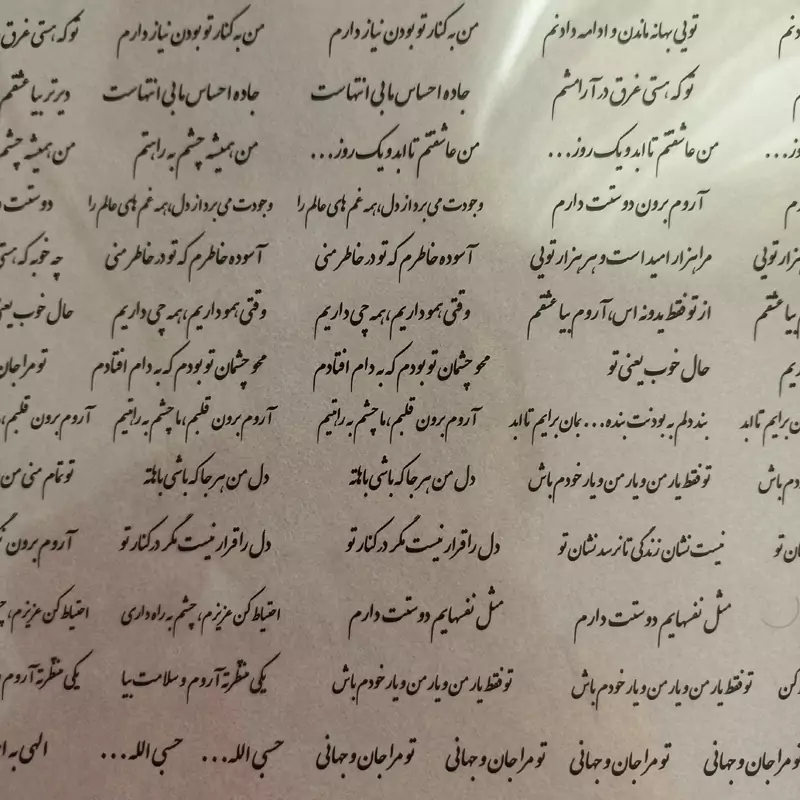 دنم تویی بهانه ماندن و ادامه دادنم من به کنار تو بودن نیاز دارم من به کنار تو بودن نیاز دارم تو که هستی غرق
تو که هستی غرق در آرامشم جاده احساس ما بی انتهاست جاده احساس ما بی انتهاست دیرتر بیا عشقم
وز... من عاشقتم تا ابد و یک روز... من عاشقتم تا ابد و یک روز... من همیشه چشم به راهتم من همیشه چشم
آروم برون دوستت دارم وجودت می برد از دل، همه غم های عالم را وجودت می برد از دل، همه غم های عالم را دوستت د
هزار تویی مرا هزار امید است و هر هزار تویی آسوده خاطرم که تو در خاطر منی آسوده خاطرم که تو در خاطر منی چه خوبه که هستی
بیا عشقم از تو فقط یدونه اس، آروم بیا عشقم وقتی همو داریم، همه چی داریم وقتی همو داریم، همه چی داریم حال خوب یعنی
ریم حال خوب یعنی تو محو چشمان تو بودم که به دام افتادم محو چشمان تو بودم که به دام افتادم تو مرا جان
ن برایم تا ابد بند دلم به بودنت بنده... بمان برایم تا ابد آروم برون قلبم، ما چشم به راهتیم آروم برون قلبم، ما چشم به راهتیم آروم برون قلبم،
دم باش تو فقط یار من و یار من و یار خودم باش دل من هر جا که باشی باهاته دل من هر جا که باشی باهاته تو تمام منی من
ان تو نیست نشان زندگی تا نرسد نشان تو دل را قرار نیست مگر در کنار تو دل را قرار نیست مگر در کنار تو آروم برون
مثل نفسهایم دوستت دارم مثل نفسهایم دوستت دارم احتیاط کن عزیزم، چشم به راه داری احتیاط کن عزیزم، چ
کن تو فقط یار من و یار من و یار خودم باش تو فقط یار من و یار من و یار خودم باش یکی منتظرته آروم و سلامت بیا یکی منتظرته آروم و
تو مرا جان و جهانی تو مرا جان و جهانی تو مرا جان و جهانی تو مرا جان و جهانی حسبی الله... حسبی الله... الهی به ا